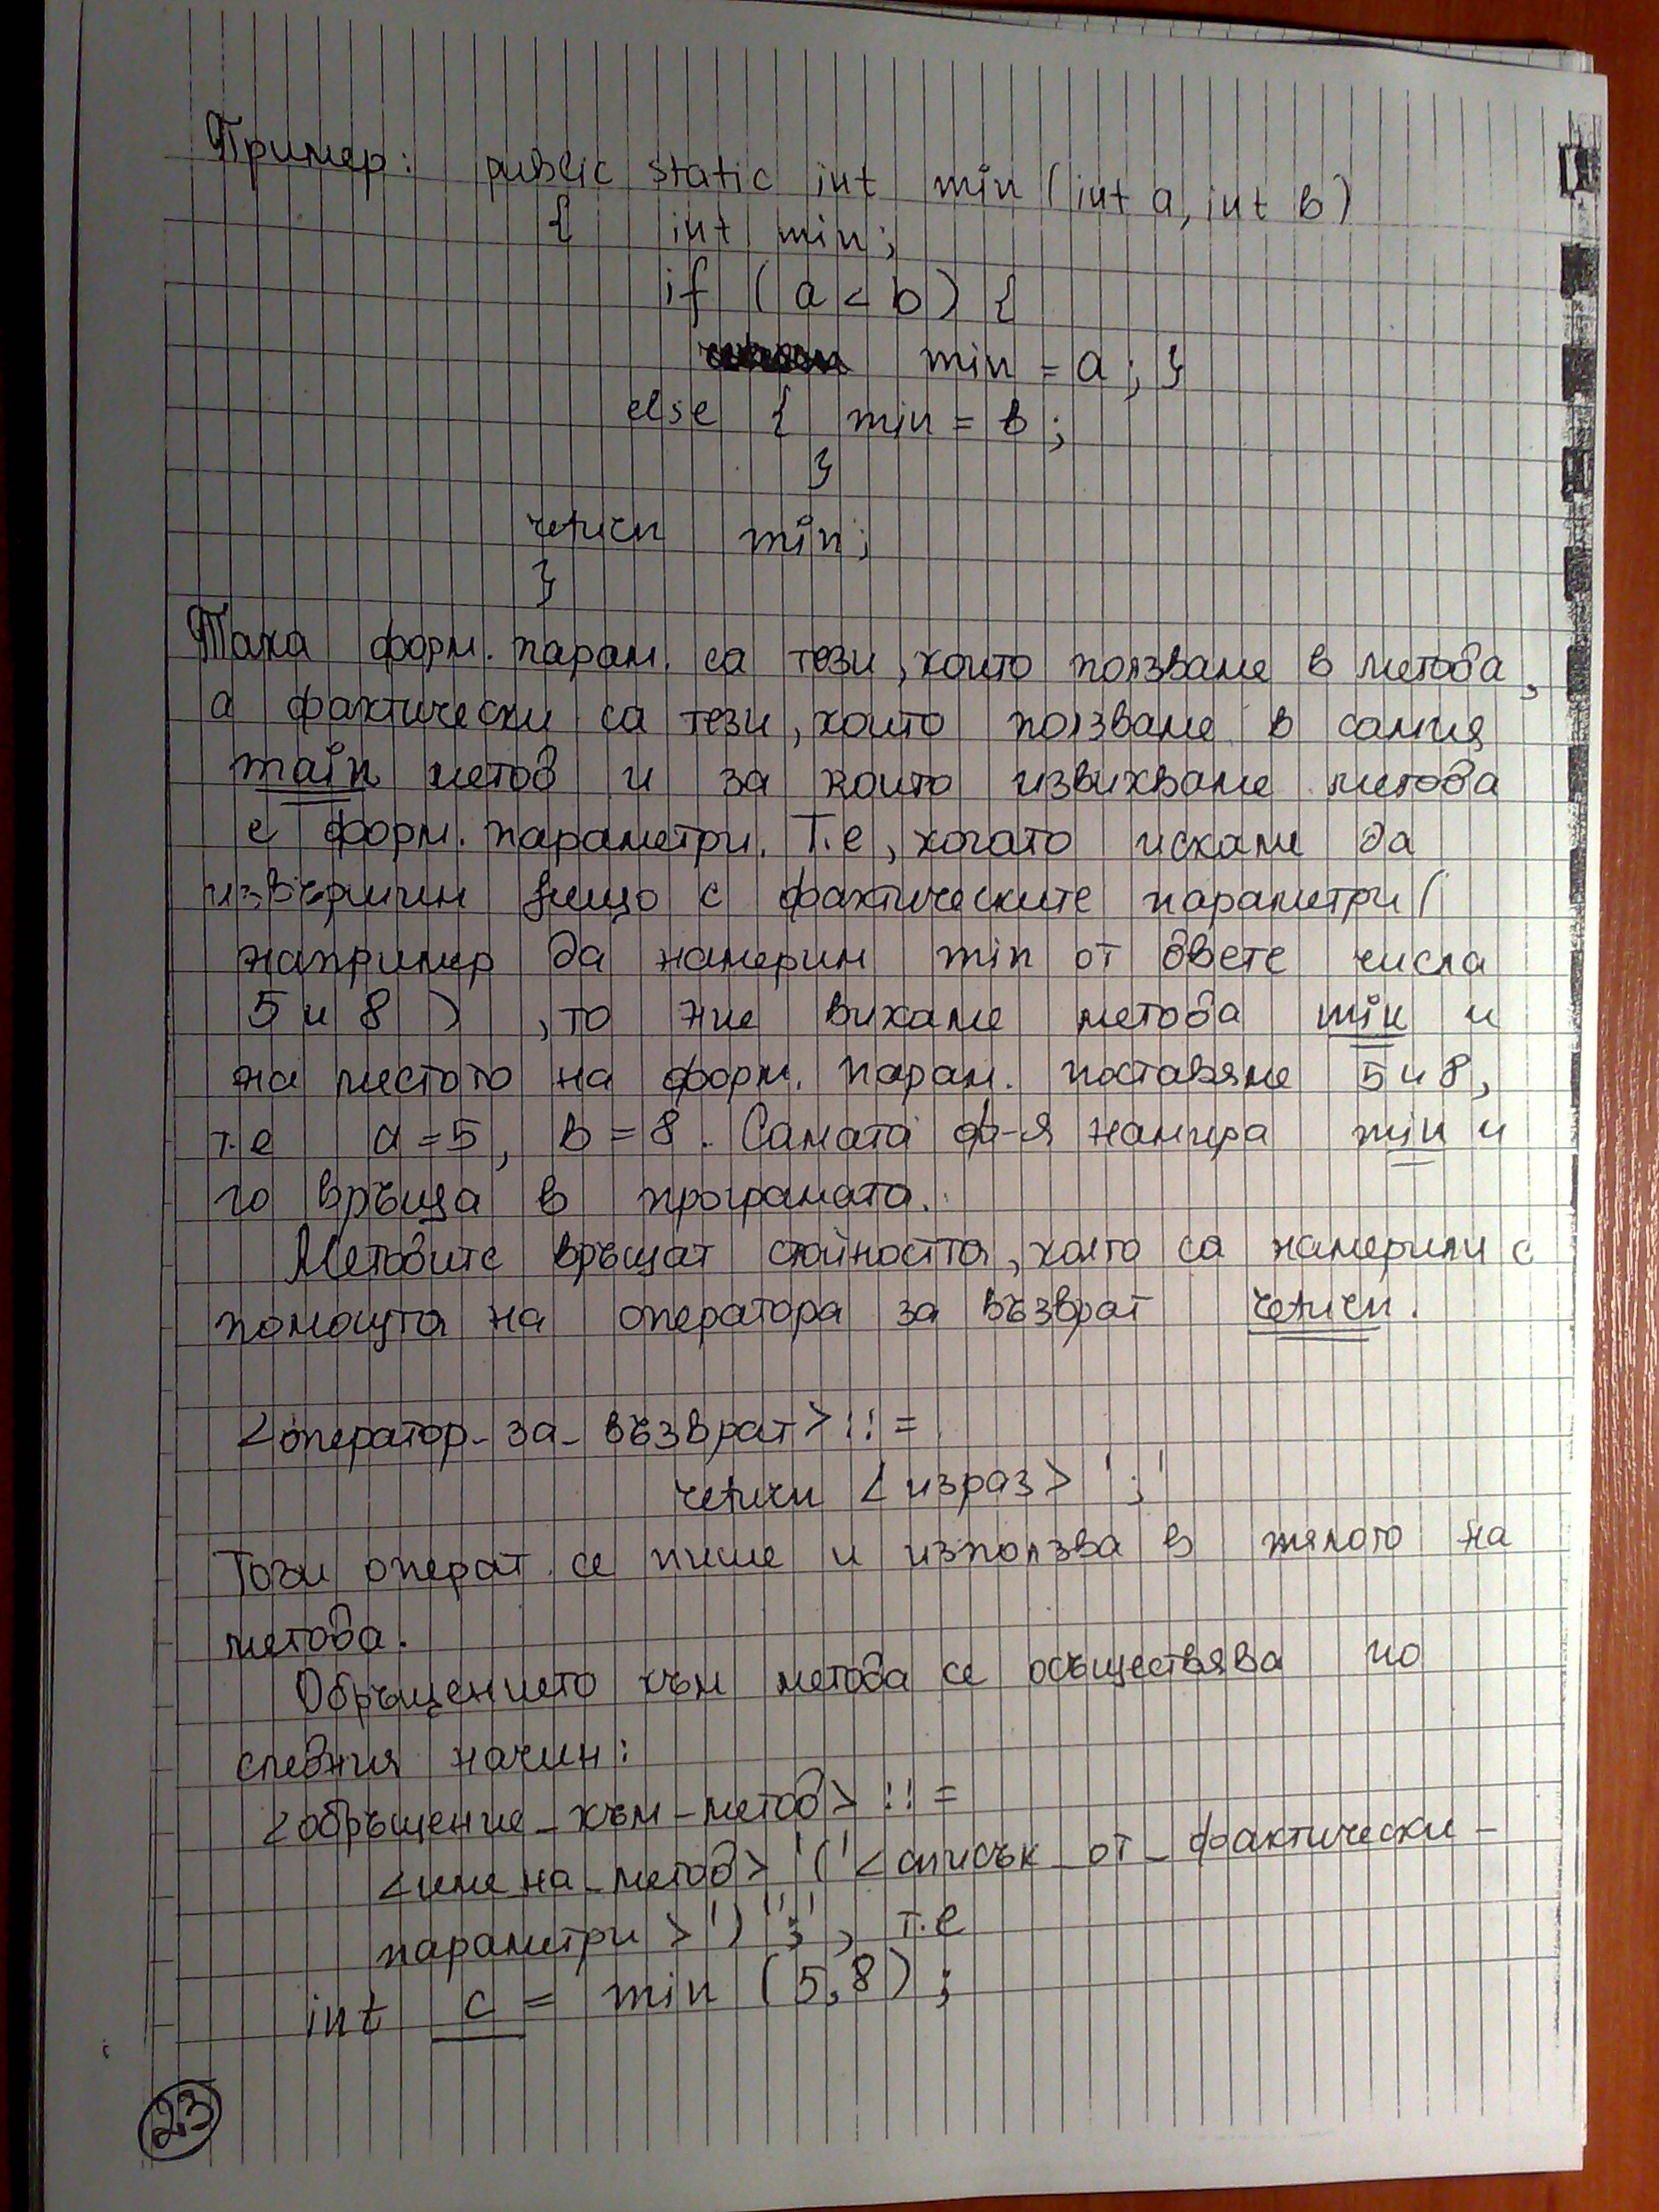 Пример: public static int min (int a, int b)
{ int min;
if (a < b) {
min = a; }
else { min = b;
}
return min;
}
Така форм. парам. са тези, които ползваме в метода,
а фактически са тези, които ползваме в самия
main метод и за които извикваме метода
с форм. параметри. Т.е, когато искаме да
извършим нещо с фактическите параметри (
например да намерим min от двете числа
5 и 8 ) , то ние викаме метода min и
на мястото на форм. парам. поставяме 5 и 8,
т.е a = 5, b = 8. Самата ф-я намира min и
го връща в програмата.
Методите връщат стойността, която са намерили с
помощта на оператора за възврат return.
<оператор_за_възврат> ::=
return <израз> ';'
Този операт. се пише и използва в тялото на
метода.
Обръщението към метода се осъществява по
следния начин:
<обръщение_към_метод> ::=
<име на_метод> '(' <списък_от_фактически_
параметри > ')' ';' , т.е
int c = min (5,8) ;
23